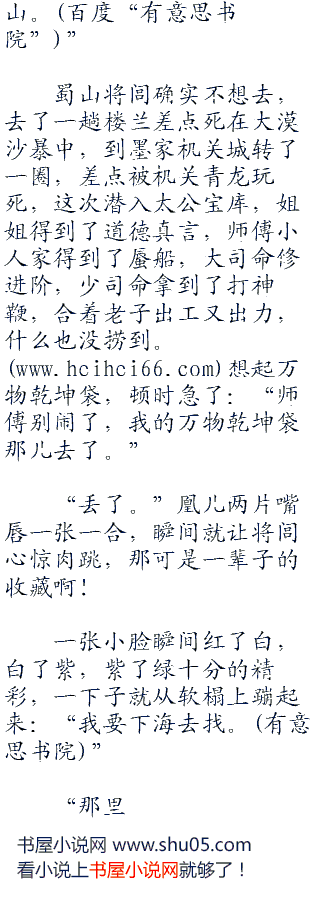 山。(百度“有意思书
院”)”
蜀山将闾确实不想去，
去了一趟楼兰差点死在大漠
沙暴中，到墨家机关城转了
一圈，差点被机关青龙玩
死，这次潜入太公宝库，姐
姐得到了道德真言，师傅小
人家得到了蜃船，大司命修
进阶，少司命拿到了打神
鞭，合着老子出工又出力，
什么也没捞到。
(www.hcihci66.com)想起万
物乾坤袋，顿时急了：“师
傅别闹了，我的万物乾坤袋
那儿去了。”
“丢了。”凰儿两片嘴
唇一张一合，瞬间就让将闾
心惊肉跳，那可是一辈子的
收藏啊！
一张小脸瞬间红了白，
白了紫，紫了绿十分的精
彩，一下子就从软榻上蹦起
来：“我要下海去找。(有意
思书院)”
“那里
书屋小说网 www.shu05.com
看小说上书屋小说网就够了！